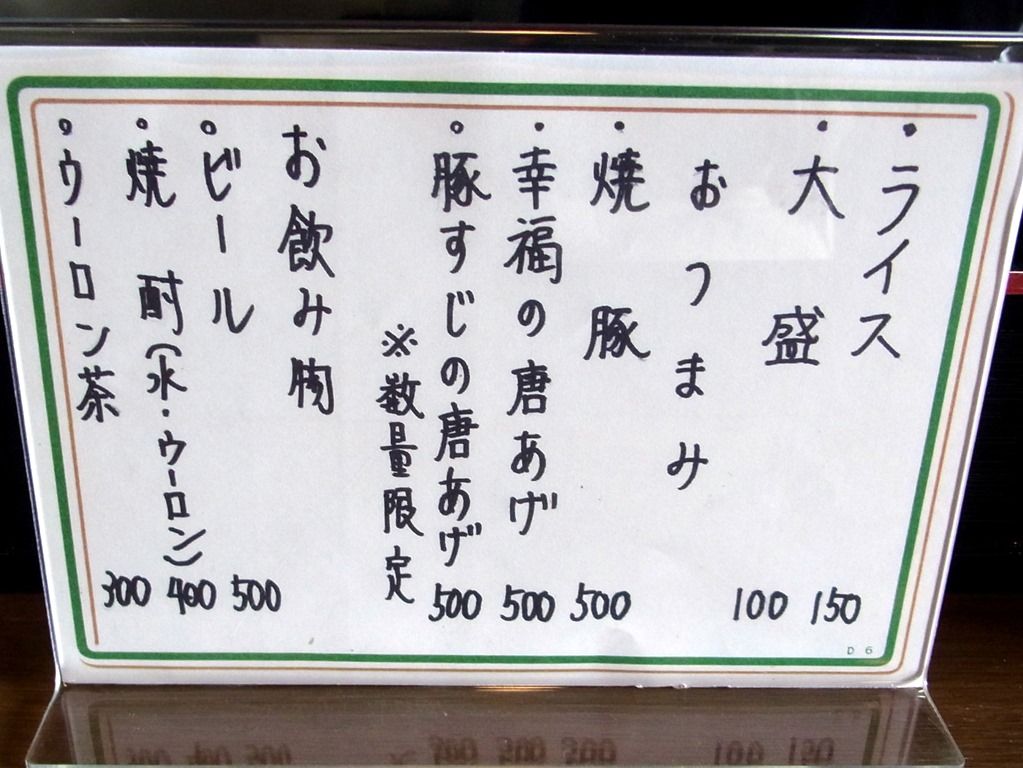 ・ライス 150
・大盛 100
おつまみ
・焼豚 500
・幸福の唐あげ 500
・豚すじの唐あげ 500
※数量限定
お飲み物
・ビール 500
・焼酎(水・ウーロン) 400
・ウーロン茶 300
D 6